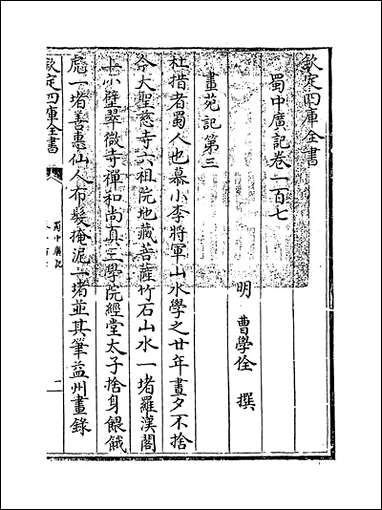 欽定四庫全書
蜀中廣記卷一百七
明 曹學佺 撰
畫苑記第三
杜措者蜀人也慕小李將軍山水學之廿年晝夕不捨
今大聖慈寺六祖院地藏菩薩竹石山水一堵羅漢閣
上小壁翠微寺禪和尚真王學院經堂太子捨身餵餓
虎一堵善惠仙人布髮掩泥一堵並其筆益州畫錄
欽定四庫全書
蜀中廣記
二